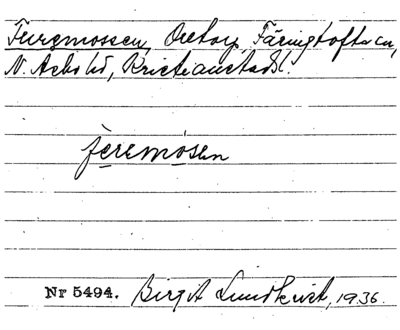 Furemossen, Oretorp, Färingtofta sn,
N. Åsbo hd, Kristianstads l.
fèremósen
Nr 5494. Birgit Lundkvist, 1936.